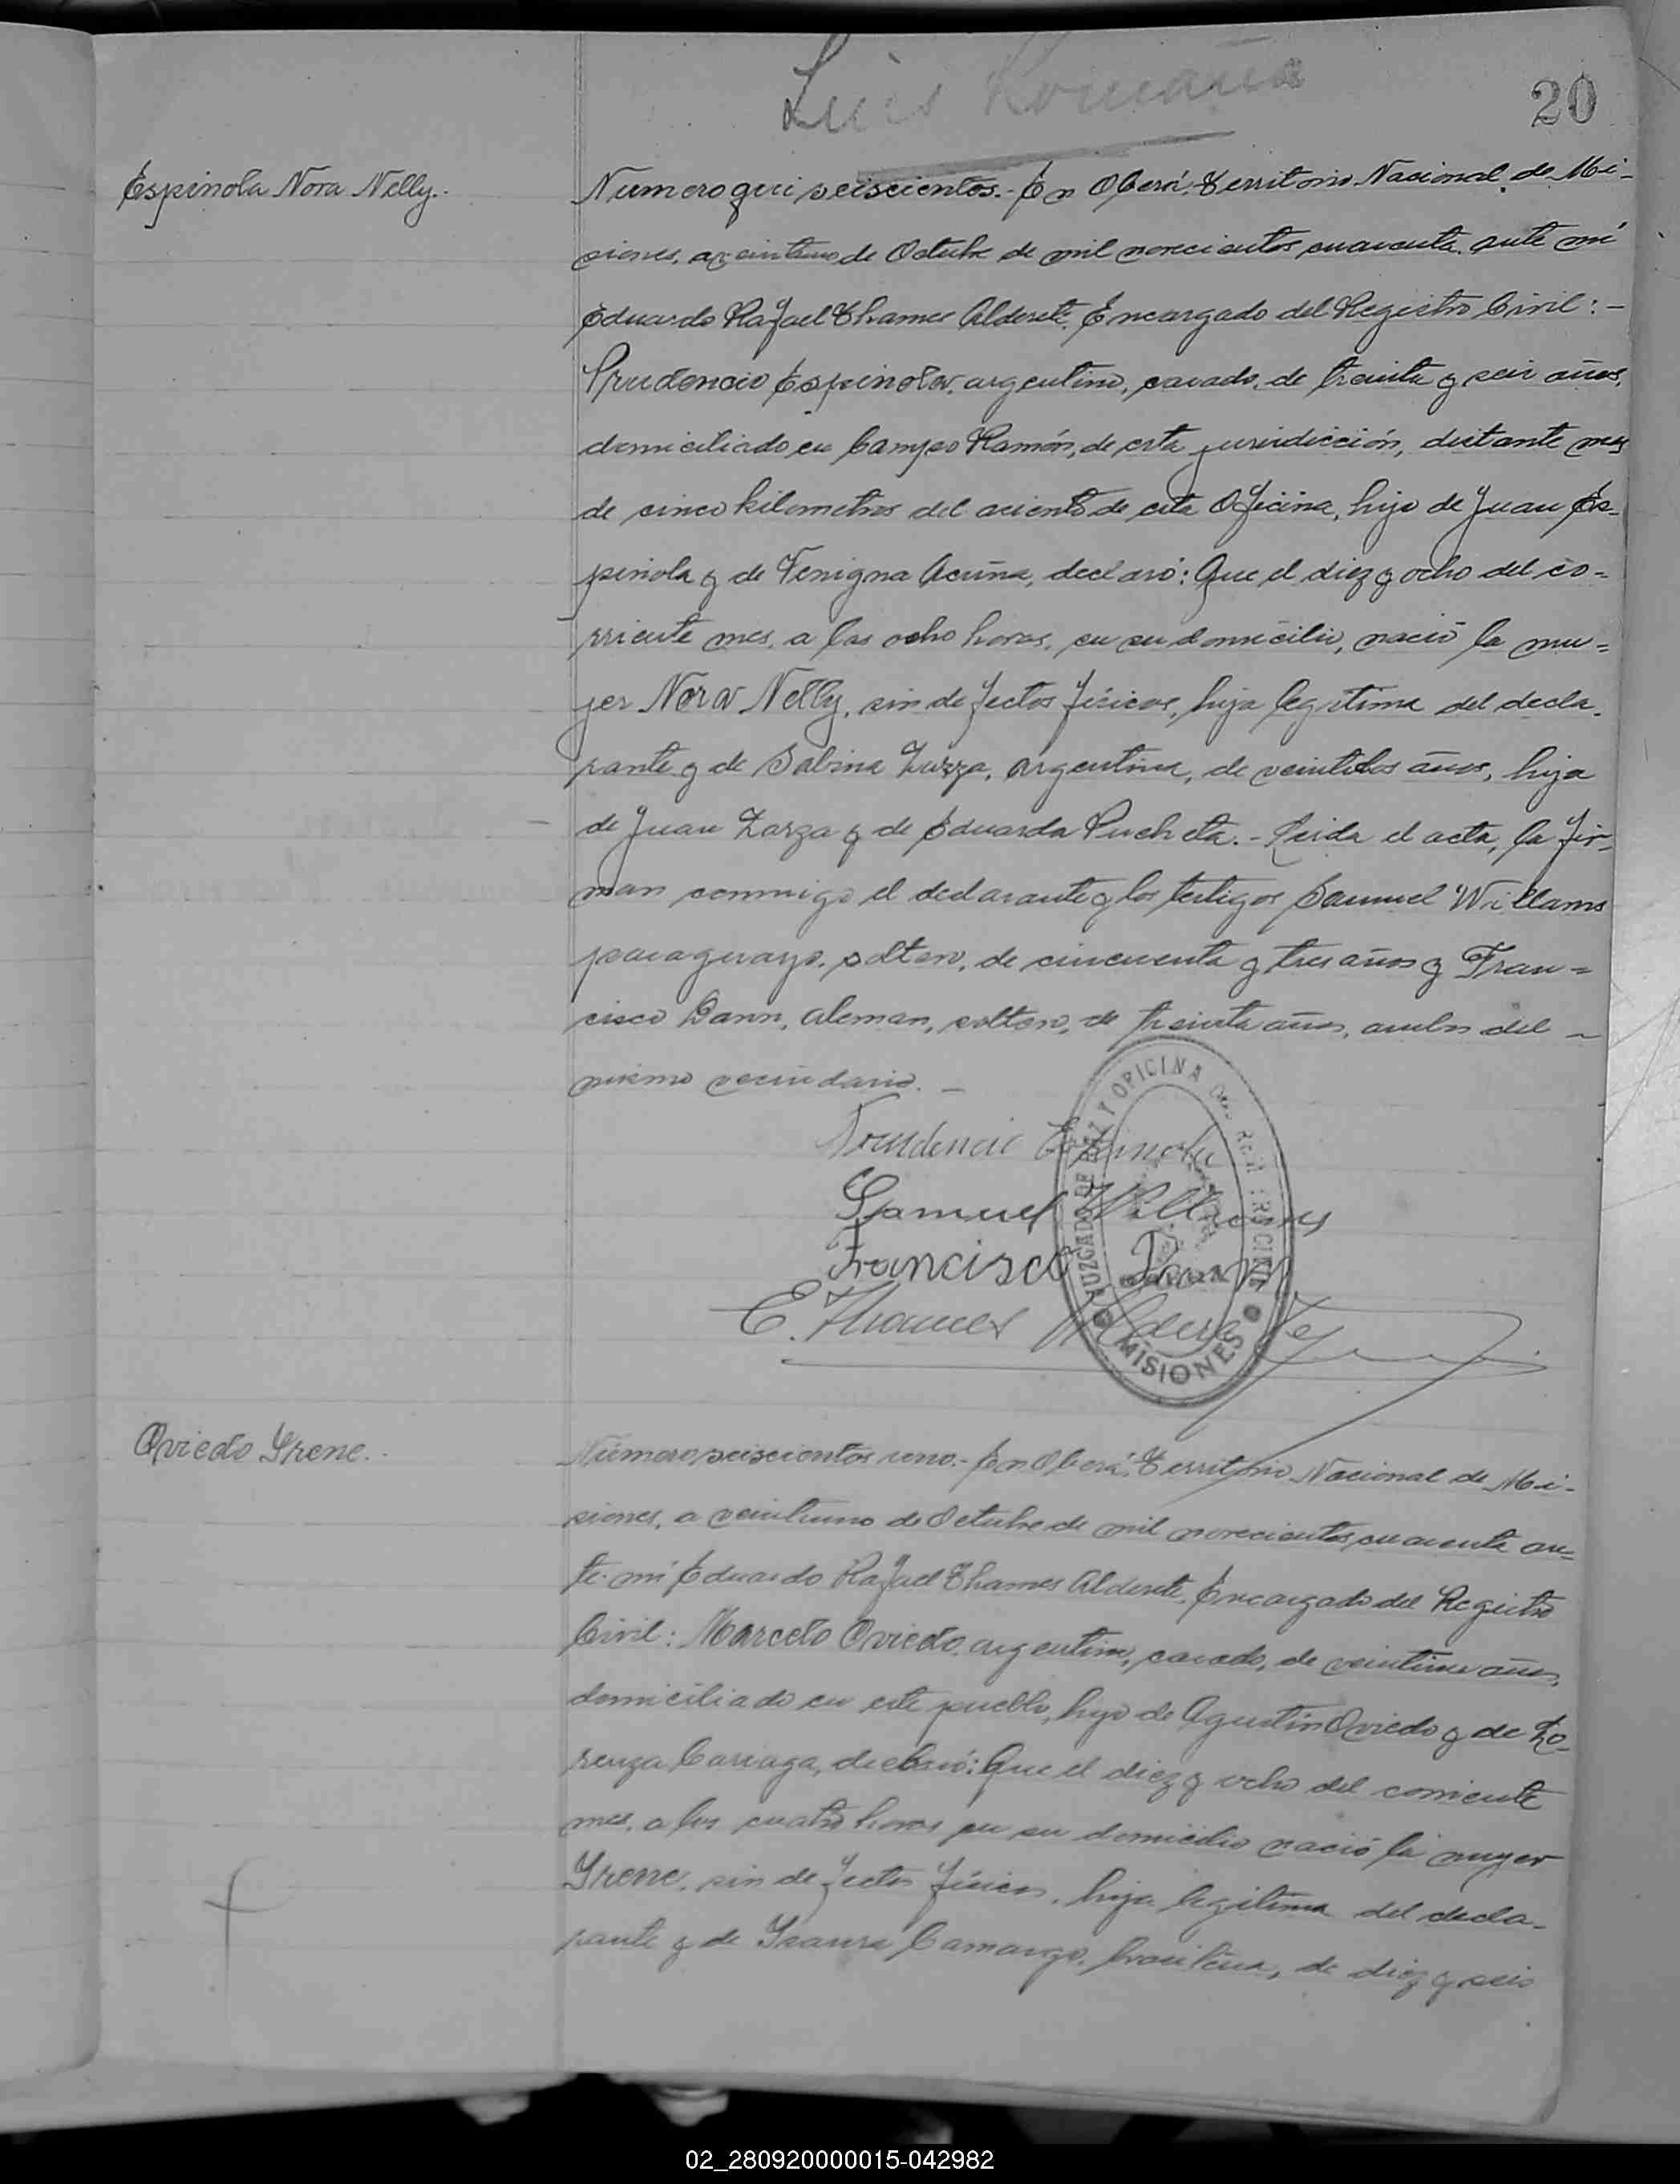 Luis Romaña
20
Espinola Nora Nelly.-
Numero qui seiscientos.- En Oberá, Territorio Nacional de Mi-
siones, a veintiuno de Octubre de mil novecientos cuarenta, ante mí
Eduardo Rafael Thames Alderete, Encargado del Registro Civil:-
Prudencio Espinola, argentino, casado, de treinta y seis años,
domiciliado en Campo Ramón, de esta jurisdicción, distante mas
de cinco kilometros del asiento de esta Oficina, hijo de Juan Es-
pinola y de Venigna Acuña, declaró: Que el diez y ocho del co-
rriente mes, a las ocho horas, en su domicilio, nació la mu-
jer Nora Nelly, sin defectos físicos, hija legitima del decla-
rante y de Sabina Zarza, argentina, de veintidos años, hija
de Juan Zarza y de Eduarda Pucheta.- Leida el acta, la fir-
man conmigo el declarante y los testigos Samuel Willams
paraguayo, soltero, de cincuenta y tres años y Fran-
cisco Dann, aleman, soltero, de treinta años, ambos del -
mismo vecindario.-
Prudencio Espinola
Samuel Willams
Francisco Dann
E. Thames Alderete
JUZGADO DE PAZ Y OFICINA DEL REG. PROVINCIAL
MISIONES
Oviedo Yrene.-
Número seiscientos uno.- En Oberá, Territorio Nacional de Mi-
siones, a veintiuno de Octubre de mil novecientos cuarenta an-
te mí Eduardo Rafael Thames Alderete, Encargado del Registro
Civil: Marcelo Oviedo, argentino, casado, de veintiun años,
domiciliado en este pueblo, hijo de Agustín Oviedo y de Lo-
renza Cariaga, declaró: Que el diez y ocho del corriente
mes, a las cuatro horas en su domicilio nació la mujer
Yrene, sin defectos físicos, hija legitima del decla-
rante y de Ysaura Camargo, brasileña, de diez y seis
02_280920000015-042982